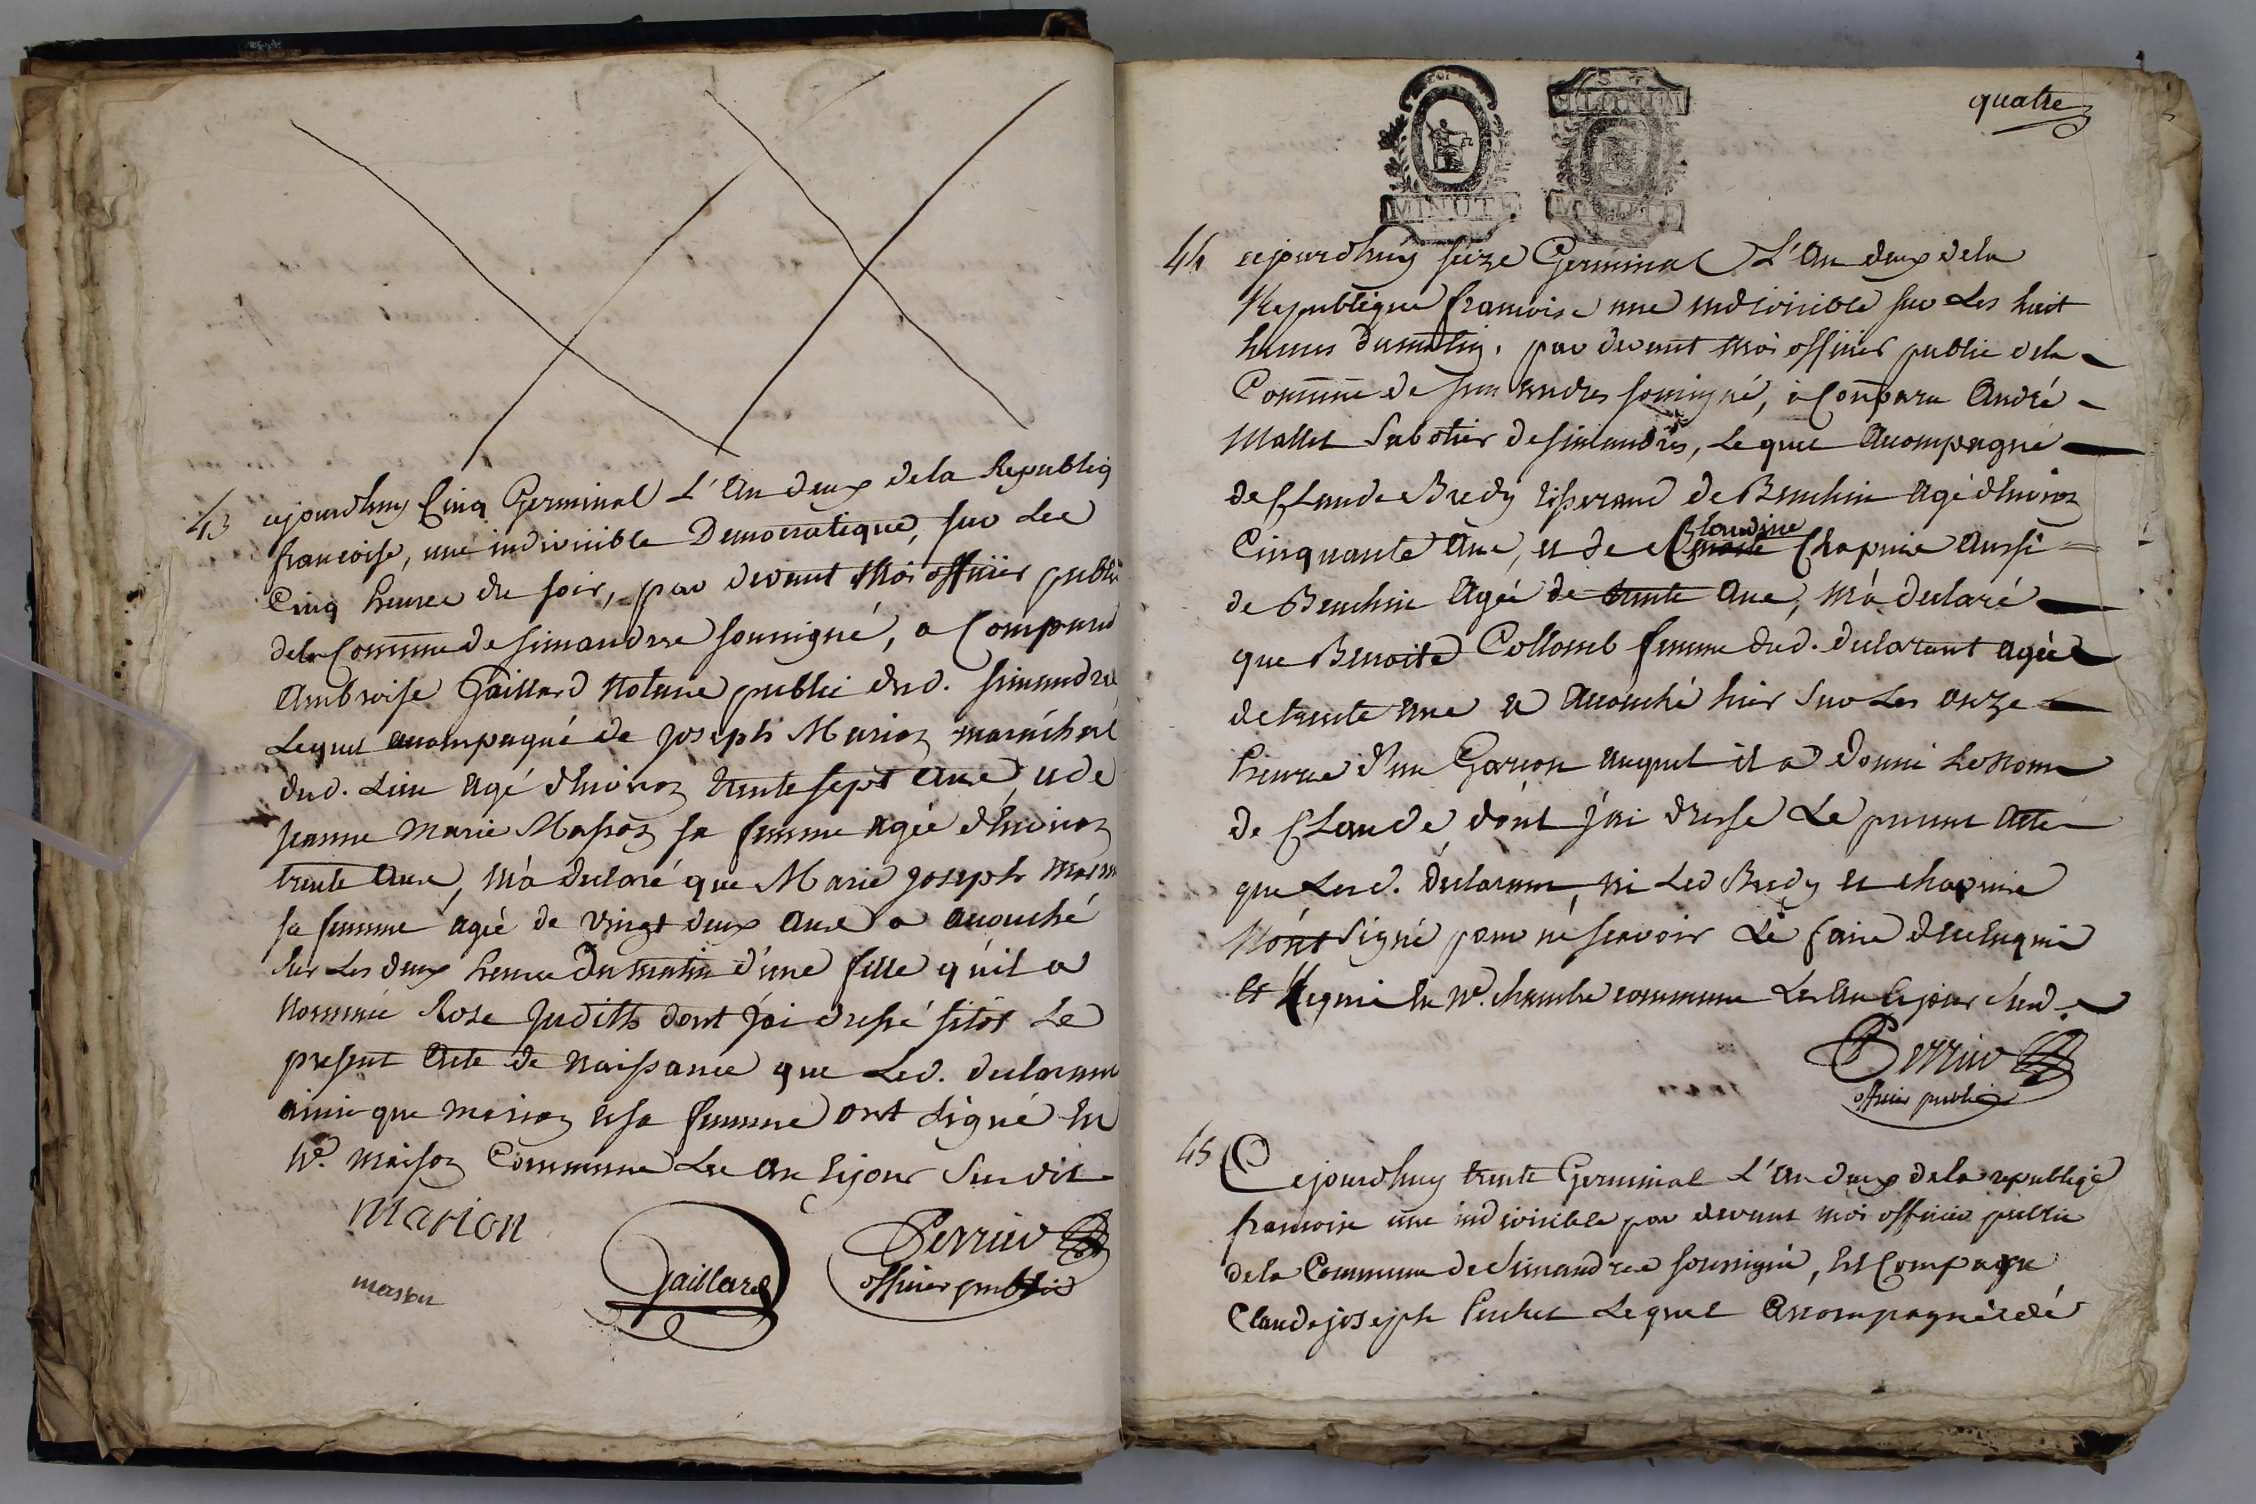 43 cejourdhuy Cinq Germinal L'An deux dela Republiq
francoise, une indivisible Democratique, sur Les
Cinq heures du soir, par devant Moi officier public
dela Commune de simandre soussigné, a Comparu
Ambroise Gaillard Notaire public dud. simandre
Lequel accompagné de joseph Marion maréchal
dud. Lieu agé d'environ trente sept ans, et de
jeanne Marie Masson sa femme agée d'environ
trente ans, M'a declaré que Marie joseph
sa femme agée de vingt deux ans a accouché
sur Les deux heures du matin d'une fille qu'il a
Nommé Rose judith dont j'ai dressé sitot Le
present Acte de Naissance que Led. declarant
ainsi que marion et sa femme ont signé en
N.e maison Commune Les an et jour sus dit
Marion
masson
Gaillard
Perrier
officier public
MINUTE
MINUTE
quatre
44 cejourdhuy seize Germinal L'An deux dela
Republique francoise une indivisible sur Les huit
heures du matin, par devant Moi officier public dela
Commune de simandres soussigné, a Comparu André
Mallet Sabotier de simandres, Lequel accompagné
de Claude Bredy tisserand de Beuchin agé d'environ
Cinquante Ans, et de Claudine Chapuis aussi
de Beuchin Agée de trente Ans, M'a declaré
que Benoite Collomb femme dud. declarant agée
de trente ans a accouché hier sur Les onze
heures d'un Garcon auquel il a donné Le Nom
de Claude, dont j'ai dressé Le present Acte
que Led. declarant, ni Led Bredy et chapuis
N'ont signé pour ne scavoir Le faire de ce enquis
et Requis en N.e chambre commune Les an et jour susd.
Perrier
officier public
45 Cejourdhuy trente Germinal L'an deux dela republiqe
francoise une indivisible par devant moi officier public
dela Commune de simandres soussigné, est Comparu
Claude joseph Lequel accompagné de